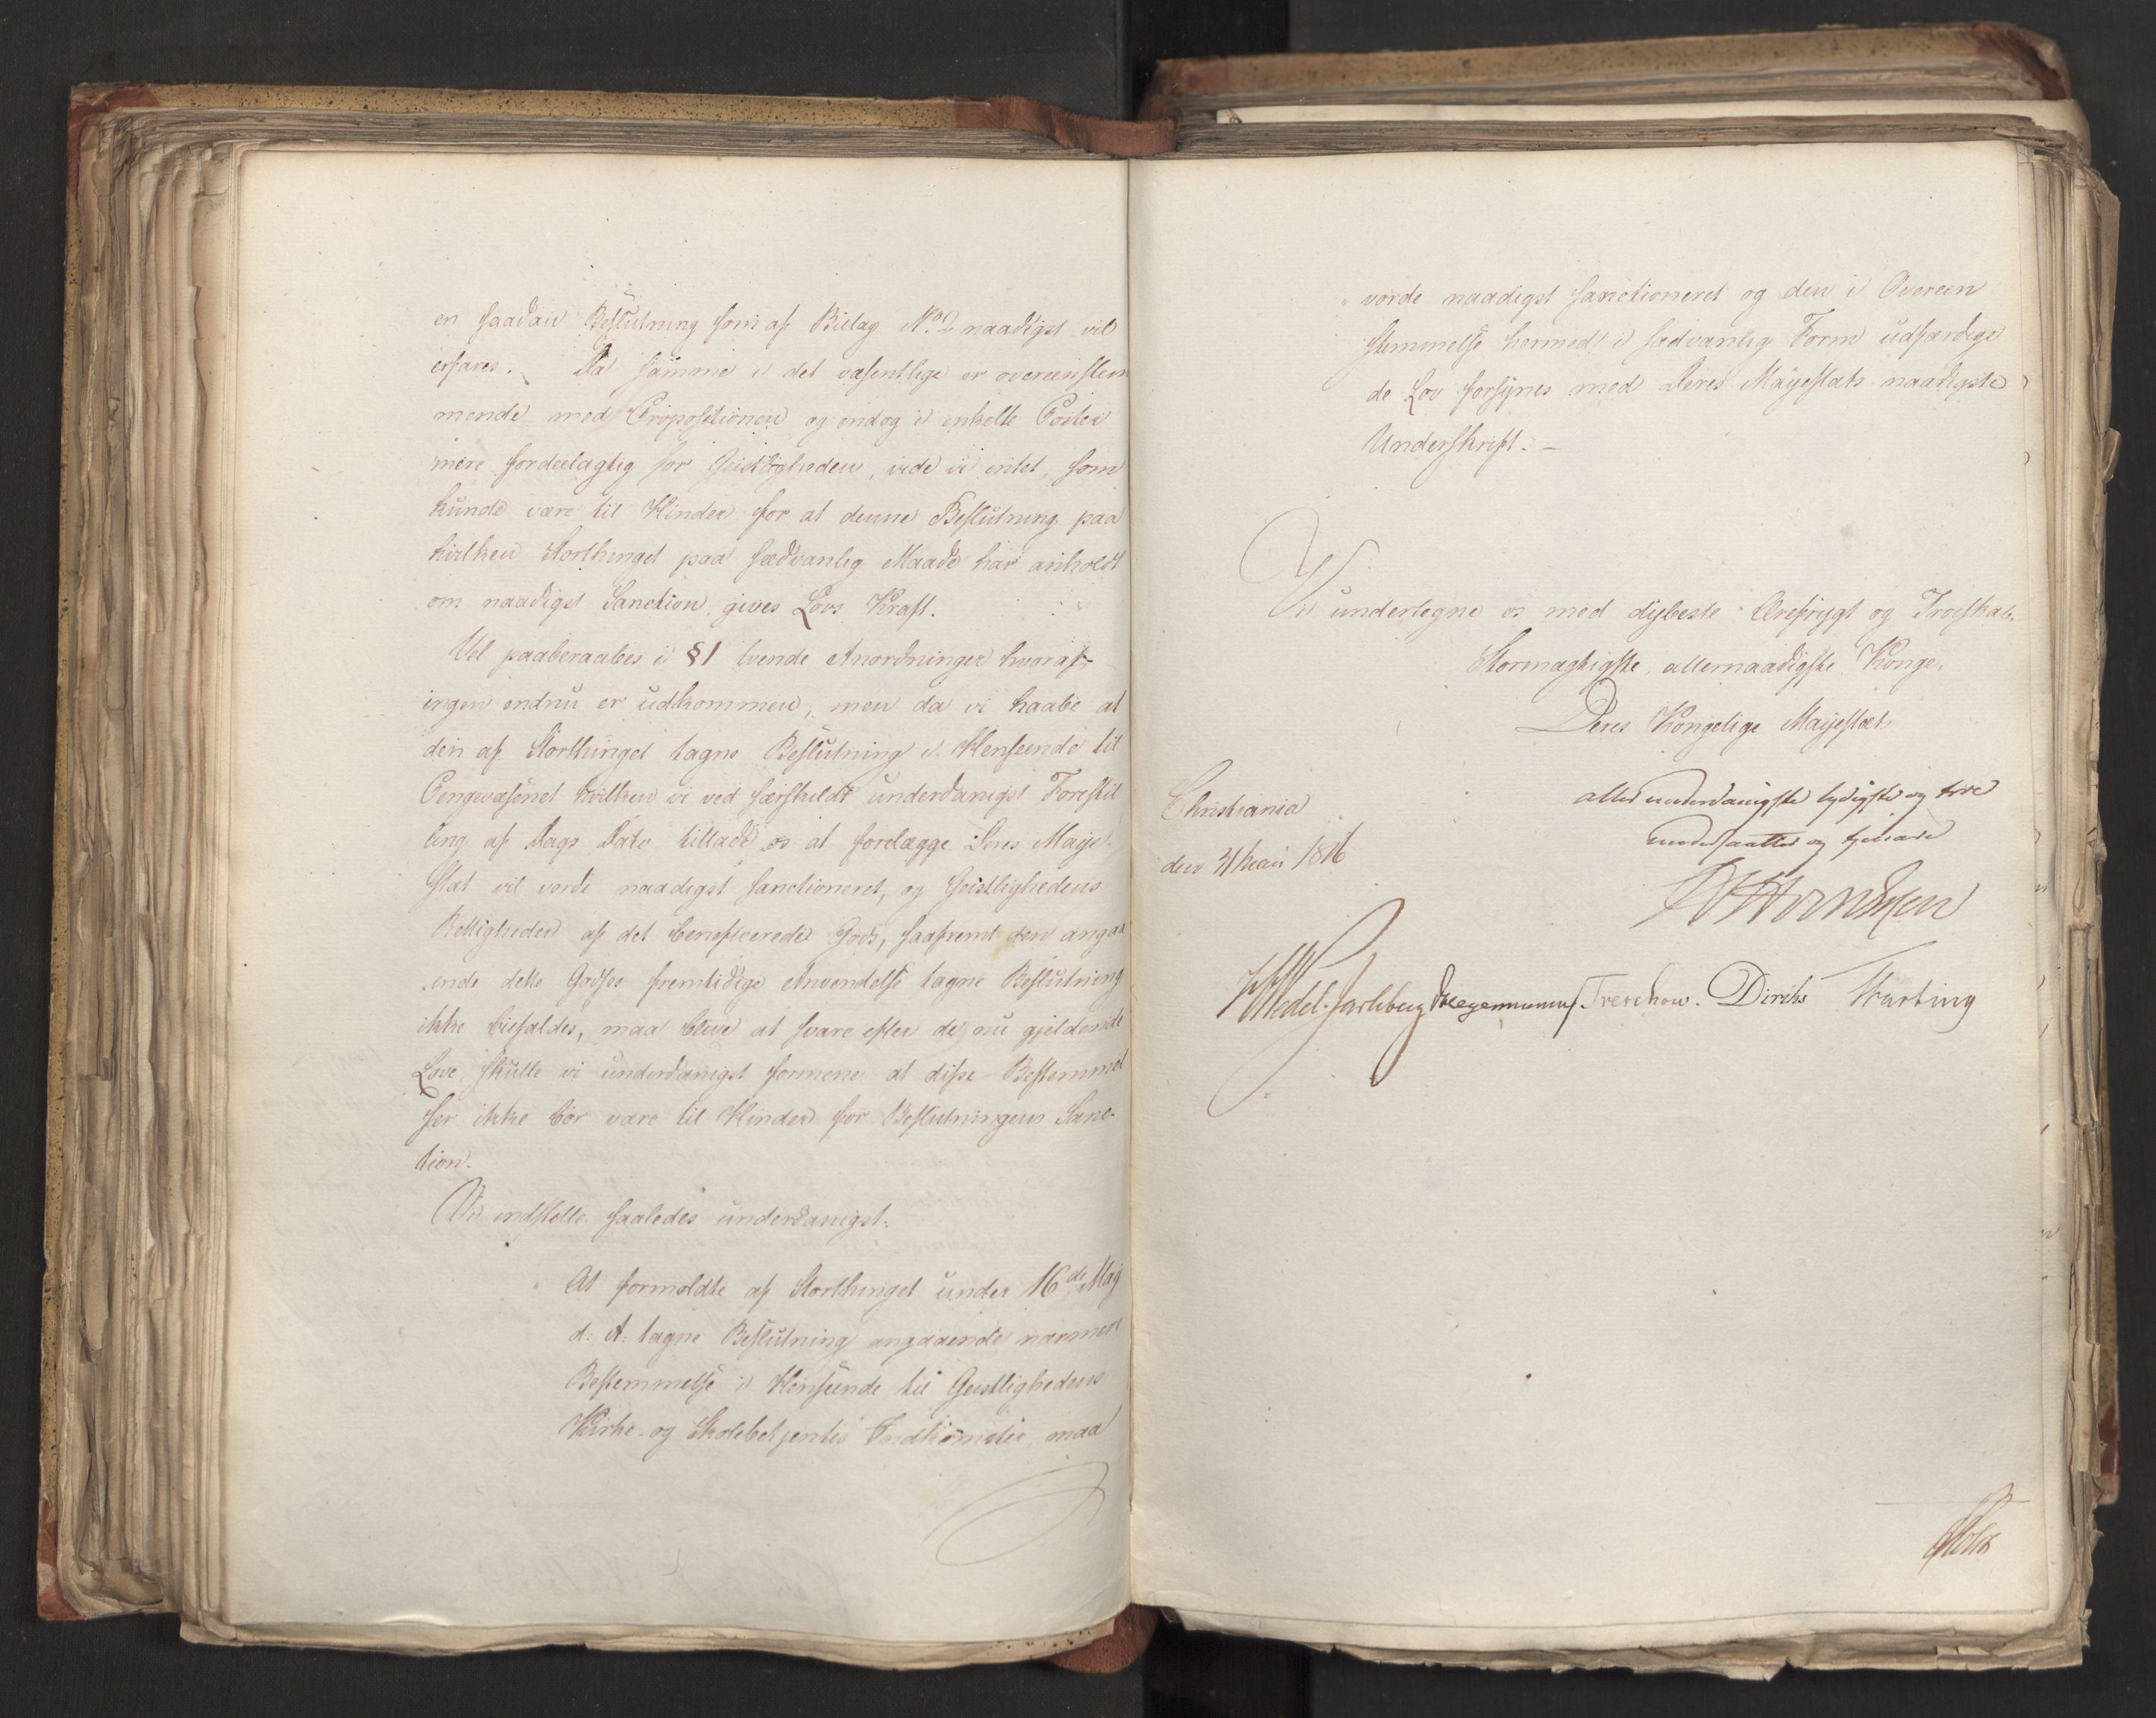 en saadan Beslutning som af Bielag No. 2 naadigst vil
erfares. Da samme i det væsentlige er overeenstem
mende med Propositionen og endog i enkelte Poster
mere fordeelagtig for Geistligheden, vide vi intet, som
kunde være til Hinder for at denne Beslutning paa
hvilken Storthinget paa sædvanlig Maade har anholdt
om naadigst Sanction, gives Lovs Kraft.
Vel paaberaabes i § 1 tvende Anordninger hvoraf
ingen endnu er udkommen; men da vi haabe at
den af Storthinget tagne Beslutning i Henseende til
Pengevæsenet hvilken vi ved særskildt underdanigst Forestil
ling af Dags Dato tillade os at forelægge Deres Maje
stæt vil vorde naadigst sanctioneret, og Geistlighedens
Rettigheder af det beneficerede Gods, saafremt den angaa
ende dette Godses fremtidige Anvendelse tagne Beslutning
ikke biefaldes, maa blive at svare efter de nu gjeldende
Love, skulle vi underdanigst formene at disse Bestemmel
ser ikke bør være til Hinder for Beslutningens Sanc-
tion.
Vi indstille saaledes underdanigst:
At formeldte af Storthinget under 16de Maj
d: A: tagne Beslutning angaaende nærmere
Bestemmelse i Henseende til Geistlighedens
Kirke- og Skolebetjentes Indkomster, maa
vorde naadigst sanctioneret og den i Overeen
stemmelse hermed i sædvanlig Form udfærdige
de Lov forsynes med Deres Majestæts naadigste
Underskrift. –
Vi undertegne os med dybeste Ærefrygt og Troeskab.
Stormægtigste, allernaadigste Konge,
Deres Kongelige Majestæts
allerunderdanigste lydigste og troe
undersaatter og tjenere
Christiania
den 31 Maii 1816
Wedel-Jarlsberg Treschow. Diriks